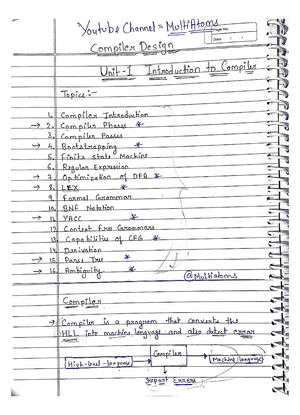 Youtube Channel = MultiAtoms
Page No.
Date
Compiler Design
Unit-I Introduction to Compiler
Topics :-
1. Compiler Introduction
→ 2. Compiler Phases *
3. Compiler Passes
→ 4. Bootstrapping *
5. Finite State Machine
6. Regular Expression
→ 7. Optimization of DFA *
→ 8. LEX *
9. Formal Grammar
10. BNF Notation
→ 11. YACC *
12. Context Free Grammars
13. Capabilities of CFG *
14. Derivation
→ 15. Parse Tree *
→ 16. Ambiguity *
@Multiatoms
Compiler
→ Compiler is a program that converts the
HLL into machine language and also detect error
High-level-language → Compiler → Machine language
Report Errors